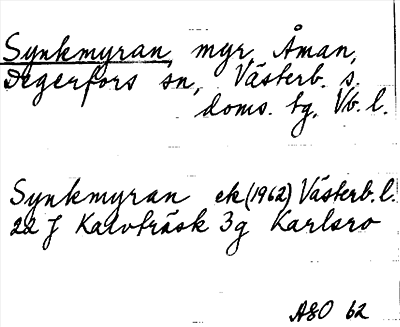 Synkmyran, myr, Åman,
Degerfors sn, Västerb. s.
doms. tg, Vb. l.
Synkmyran ek (1962) Västerb. l.
22 J Kalvträsk 3g Karlsro
ASO 62